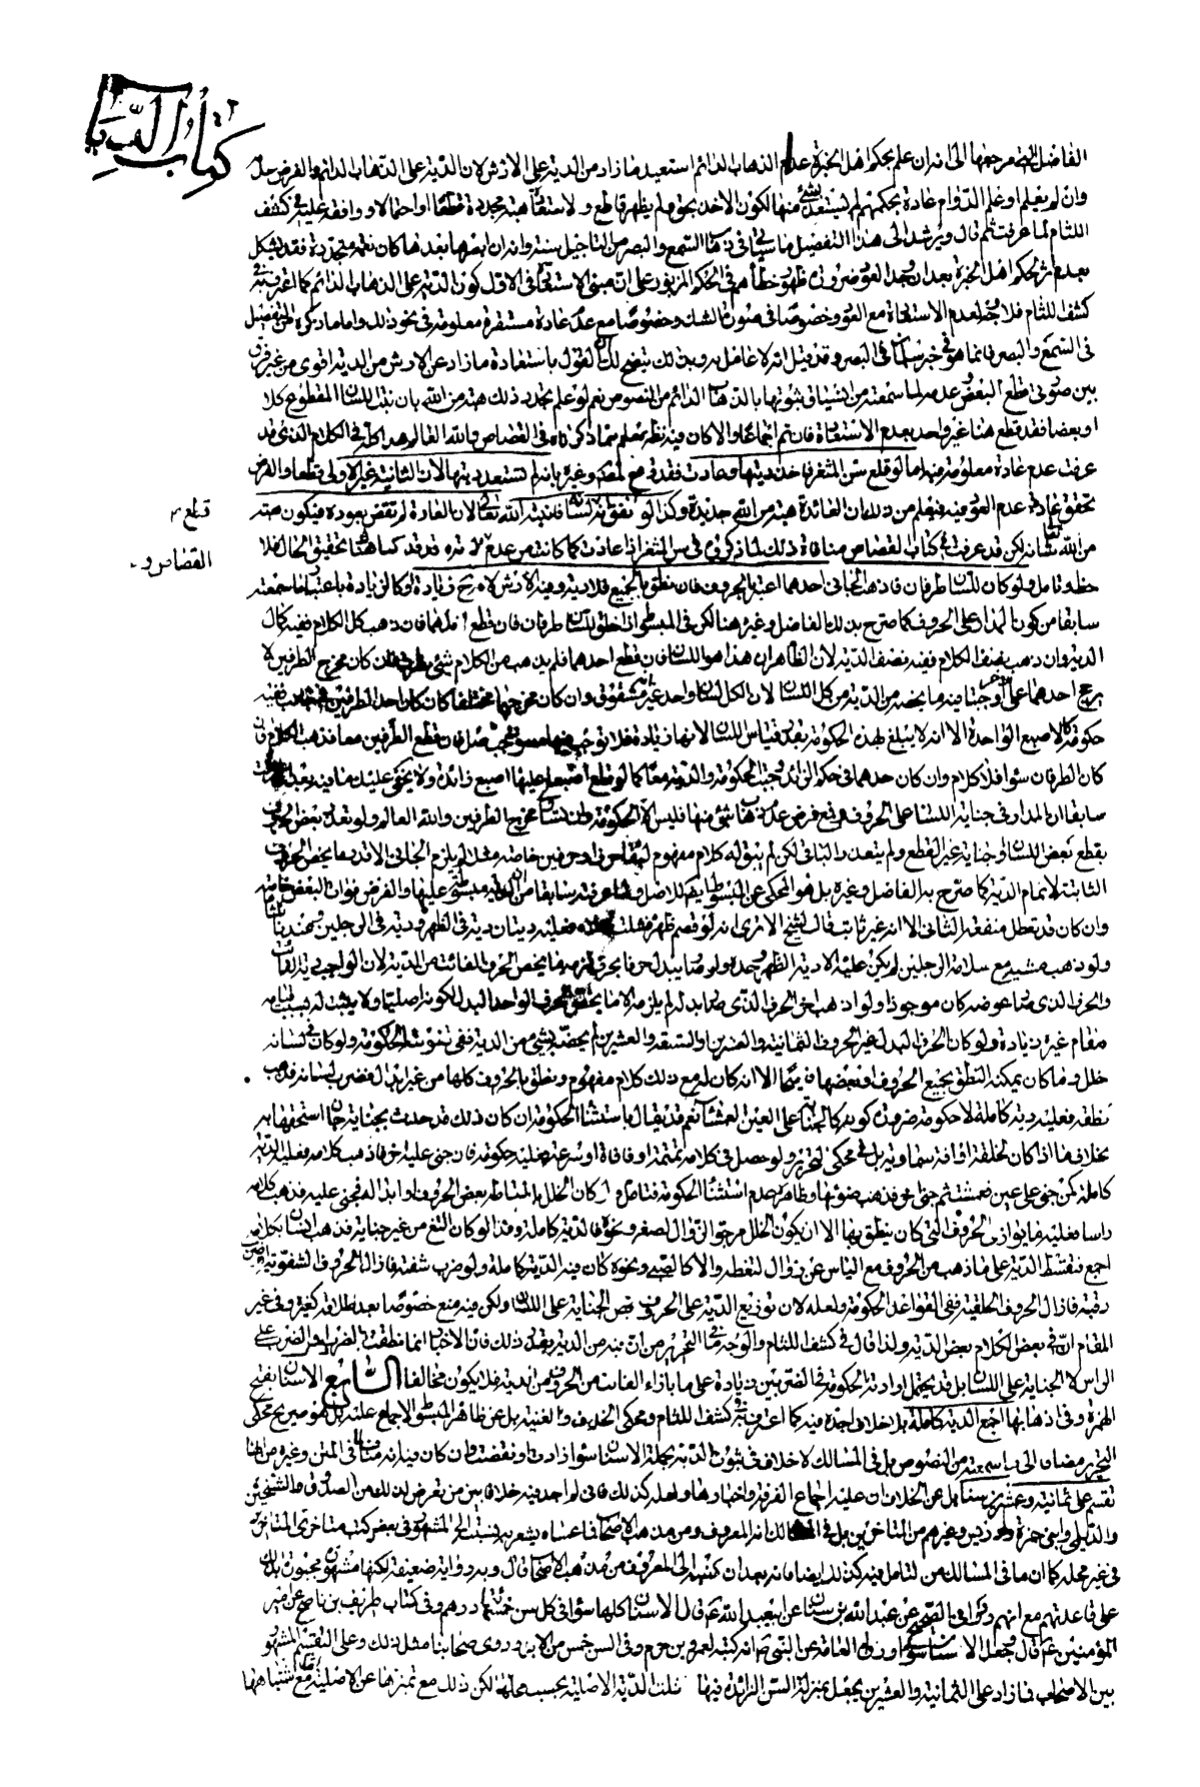 كتاب الديات
الفاضل التي مرجعها الى انه ان علم بحكم اهل الخبرة عدم الذهاب الدائم استعيد ما زاد من الدية على الارش لان الدية على الذهاب الدائم والفرض خلافه
وان لم يعلم او علم الدوام عادة بحكمهم لم يستعد شيء منها لكون الاخذ بحق ولم يظهر قاطع ولاستعادة هبة مجددة قطعا او احتمالا ووافقه عليه في كشف
اللثام لما عرفت ثم قال ويرشد الى هذا التفصيل ما سيأتي في ذهاب السمع والبصر من التأجيل بسنة وانه ان ابصر بعدها كان نعمة مجددة فقد يشكل
بعدم حكم اهل الخبرة بعد ان وجد العود ضرورة ظهور خطأهم في الحكم المزبور على ان مبنى الاستعادة في الاول كون الدية على الذهاب الدائم كما اعترف به في
كشف اللثام فلا وجه لعدم الاستعادة مع العود وخصوصا في صورة الشك وخصوصا مع عدم عادة مستقرة معلومة في نحو ذلك واما ما ذكره من التفصيل
في السمع والبصر فانما هو في خبر سليمان في البصر وقد قيل انه لا عامل به وبذلك يتضح لك ان القول باستعادة ما زاد عن الارش من الدية اقوى من غير فرق
بين صورتي قطع البعض وعدمه لما سمعته من انسياق ثبوتها بالذهاب الدائم من النصوص نعم لو علم تجدد ذلك هبة من الله بان نبت اللسان المقطوع كلا
او بعضا فقد قطع هنا غير واحد بعدم الاستعادة فان تم اجماعا والا كان فيه نظر يعلم مما ذكرناه في القصاص والله العالم هذا كله في الكلام الذي قد
عرفت عدم عادة معلومة فيه اما لو قلع سن المثغر فاخذ ديتها وعادت فقد في وغيره بانه لم تستعد ديتها لان الثانية غير الاولى قطعا والفرض
تحقق عادة عدم العود فيه فيعلم من ذلك ان العائدة هبة من الله جديدة وكذا لو اتفق انه نبت لسانه فانبته الله تعالى لان العادة لم تقض بعوده فيكون هبة
قطع
من الله تعالى شأنه لكن قد عرفت في كتاب القصاص منافاة ذلك لما ذكروه في سن المثغر اذا عادت كما كانت من عدم
القصاص و
حظه وتأمل ولو كان للسان طرفان فاذهب الجاني احدهما اعتبر بالحروف فان نطق بالجميع فلا دية وفيه الارش
سابقا من كون المدار على الحروف كما صرح بذلك الفاضل وغيره هنا لكن في المبسوط اذا خلق للسان طرفان فان قطع احدهما فان ذهب كل الكلام ففيه كمال
الدية وان ذهب نصف الكلام ففيه نصف الدية لان الظاهر ان هذا هو اللسان فان قطع احدهما فلم يذهب من الكلام شيء نظرت فان كان مخرج الطرفين لا
يرجح احدهما على الاخر اوجبنا فيه ما يخصه من الدية من كل اللسان لان الكل لسان واحد غير انه مشقوق وان كان مخرجهما مختلفا كان كان احد الطرفين في جانب ففيه
حكومة كالاصبع الواحدة الا انه لا يبلغ بهذه الحكومة بقدر قياس اللسان لانها زيادة فلا توجب فيها فان قطع الطرفين معا فذهب الكلام فان
كان الطرفان سواء فلا كلام وان كان احدهما في حكم الزائد وجبت الحكومة والدية معا كما لو قطع اصبعا عليها اصبع زائدة ولا يخفى عليك ما فيه بعد
سابقا ان المدار في جناية اللسان على الحروف ومع فرض عدم ذهاب شيء منها فليس الا الحكومة وان تساوى مخرج الطرفين والله العالم ولو تعذر بعض الحروف
بقطع بعض اللسان او جناية غير القطع ولم يتعذر الباقي لكن لم يبق له كلام مفهوم لم يلزم الجاني الا قدر ما يخص الحروف
الثابتة لاتمام الدية كما صرح به الفاضل وغيره بل هو المحكي عن المبسوط ايضا للاصل والفرض فوات البعض خاصة
وان كان قد تعطل منفعة الثاني الا انه غير ثابت قال الشيخ الا ترى انه لو قصم ظهره فشلت رجلاه فعليه ديتان دية في الظهر ودية في الرجلين
ولو ذهب مشيه مع سلامة الرجلين لم يكن عليه الا دية الظهر وحده ولو صار يبدل حرفا بحرف لزمه ما يخص الحرف الفائت من الدية لان الواجب دية الفائت
والحرف الذي صار عوضه كان موجودا ولو اذهب اخر الحرف الذي صار بدلا لم يلزمه الا ما يخص الحرف الواحد البدل لكونه اصليا ولا يثبت له بسبب قيامه
مقام غيره زيادة ولو كان الحرف البدل غير الحروف الثمانية والعشرين او التسعة والعشرين لم يخصه شيء من الدية ففي تفويته الحكومة ولو كان في لسانه
خلل وما كان يمكنه النطق بجميع الحروف او بعضها الا انه كان له مع ذلك كلام مفهوم ونطق بالحروف كلها من غير فضرب لسانه فذهب
نطقه فعليه دية كاملة لا حكومة ضرورة كونه كالجناية على العين العمشاء نعم قد يقال باستثناء الحكومة ان كان ذلك قد حدث بجناية جان استحقها به
بخلاف ما اذا كان لخلقة او آفة سماوية بل في محكي التحرير ولو حصل في كلامه تمتمة او فأفأة او سرعة فعليه حكومة فان جنى عليه اخر فاذهب كلامه فعليه الدية
كاملة كمن جنى على عين فعمشت ثم جنى اخر فذهب ضوئها وظاهره عدم استثناء الحكومة فتأمل ولو كان الخلل باسقاط بعض الحروف او ابداله فجنى عليه فذهب كلامه
رأسا فعليه ما يوازي الحروف التي كان ينطق بها الا ان يكون الخلل مرجو الزوال لصغر ونحوه فالدية كاملة وكذا لو كان اللثغ من غير جناية فذهب انسان بكلامه
اجمع فتقسط الدية على ما ذهب من الحروف مع اليأس عن زوال لثغه والا كالصبي ونحوه كان فيه الدية كاملة ولو ضرب شفته فازال الحروف الشفوية او ضرب
رقبته فازال الحروف الحلقية ففي القواعد الحكومة ولعله لان توزيع الدية على الحروف يخص الجناية على اللسان ولكن فيه منع خصوصا بعد اطلاقه كغيره وفي غير
المقام ان في بعض الكلام بعض الدية ولذا قال في كشف اللثام والوجه ما في التحرير من ان فيه من الدية بقدر ذلك فان الاخبار انما نطقت بالضرب او الضرب على
الرأس لا الجناية على اللسان بل قد يحتمل ارادته الحكومة في الضربتين زيادة على ما بازاء الفائت من الحروف من الدية فلا يكون مخالفا السابع الاسنان بفتح
الهمزة وفي اذهابها اجمع الدية كاملة بلا خلاف اجده فيه كما اعترف به في كشف اللثام ومحكي الخلاف والغنية بل عن ظاهر المبسوط الاجماع عليه بل هو صريح محكي
التحرير مضافا الى ما سمعته من النصوص بل في المسالك لا خلاف في ثبوت الدية بجملة الاسنان سواء زادت او نقصت وان كان فيه انه مناف لما في المتن وغيره من انها
تقسم على ثمانية وعشرين سنا بل عن الخلاف ان عليه اجماع الفرقة واخبارها ولعله كذلك فاني لم اجد فيه خلافا بين من تعرض لذلك من الصدوق والشيخين
والديلمي وابني حمزة وادريس وغيرهم من المتأخرين بل في المسالك انه المعروف ومن مذهب الاصحاب فما عساه يشعر به نسبته الى المشهور في بعض كتب متأخري المتأخرين
في غير محله كما ان ما في المسالك من التأمل فيه كذلك ايضا فانه بعد ان نسبه الى المعروف من مذهب الاصحاب قال وبه رواية ضعيفة لكنها مشهورة مجبورة بذلك
على قاعدتهم مع انهم رووا في الصحيح عن عبدالله بن سنان عن ابي عبدالله ع قال الاسنان كلها سواء في كل سن خمسمائة درهم وفي كتاب طريف بن ناصح عن امير
المؤمنين ع قال وجعل الاسنان سواء وروى العامة عن النبي ص انه كتب لعمرو بن حزم وفي السن خمس من الابل وروى اصحابنا مثل ذلك وعلى التقسيم المشهور
بين الاصحاب فما زاد على الثمانية والعشرين يجعل بمنزلة السن الزائدة فيها ثلث الدية الاصلية بحسب محله لكن ذلك مع تميزها عن الاصلية ومع اشتباهها